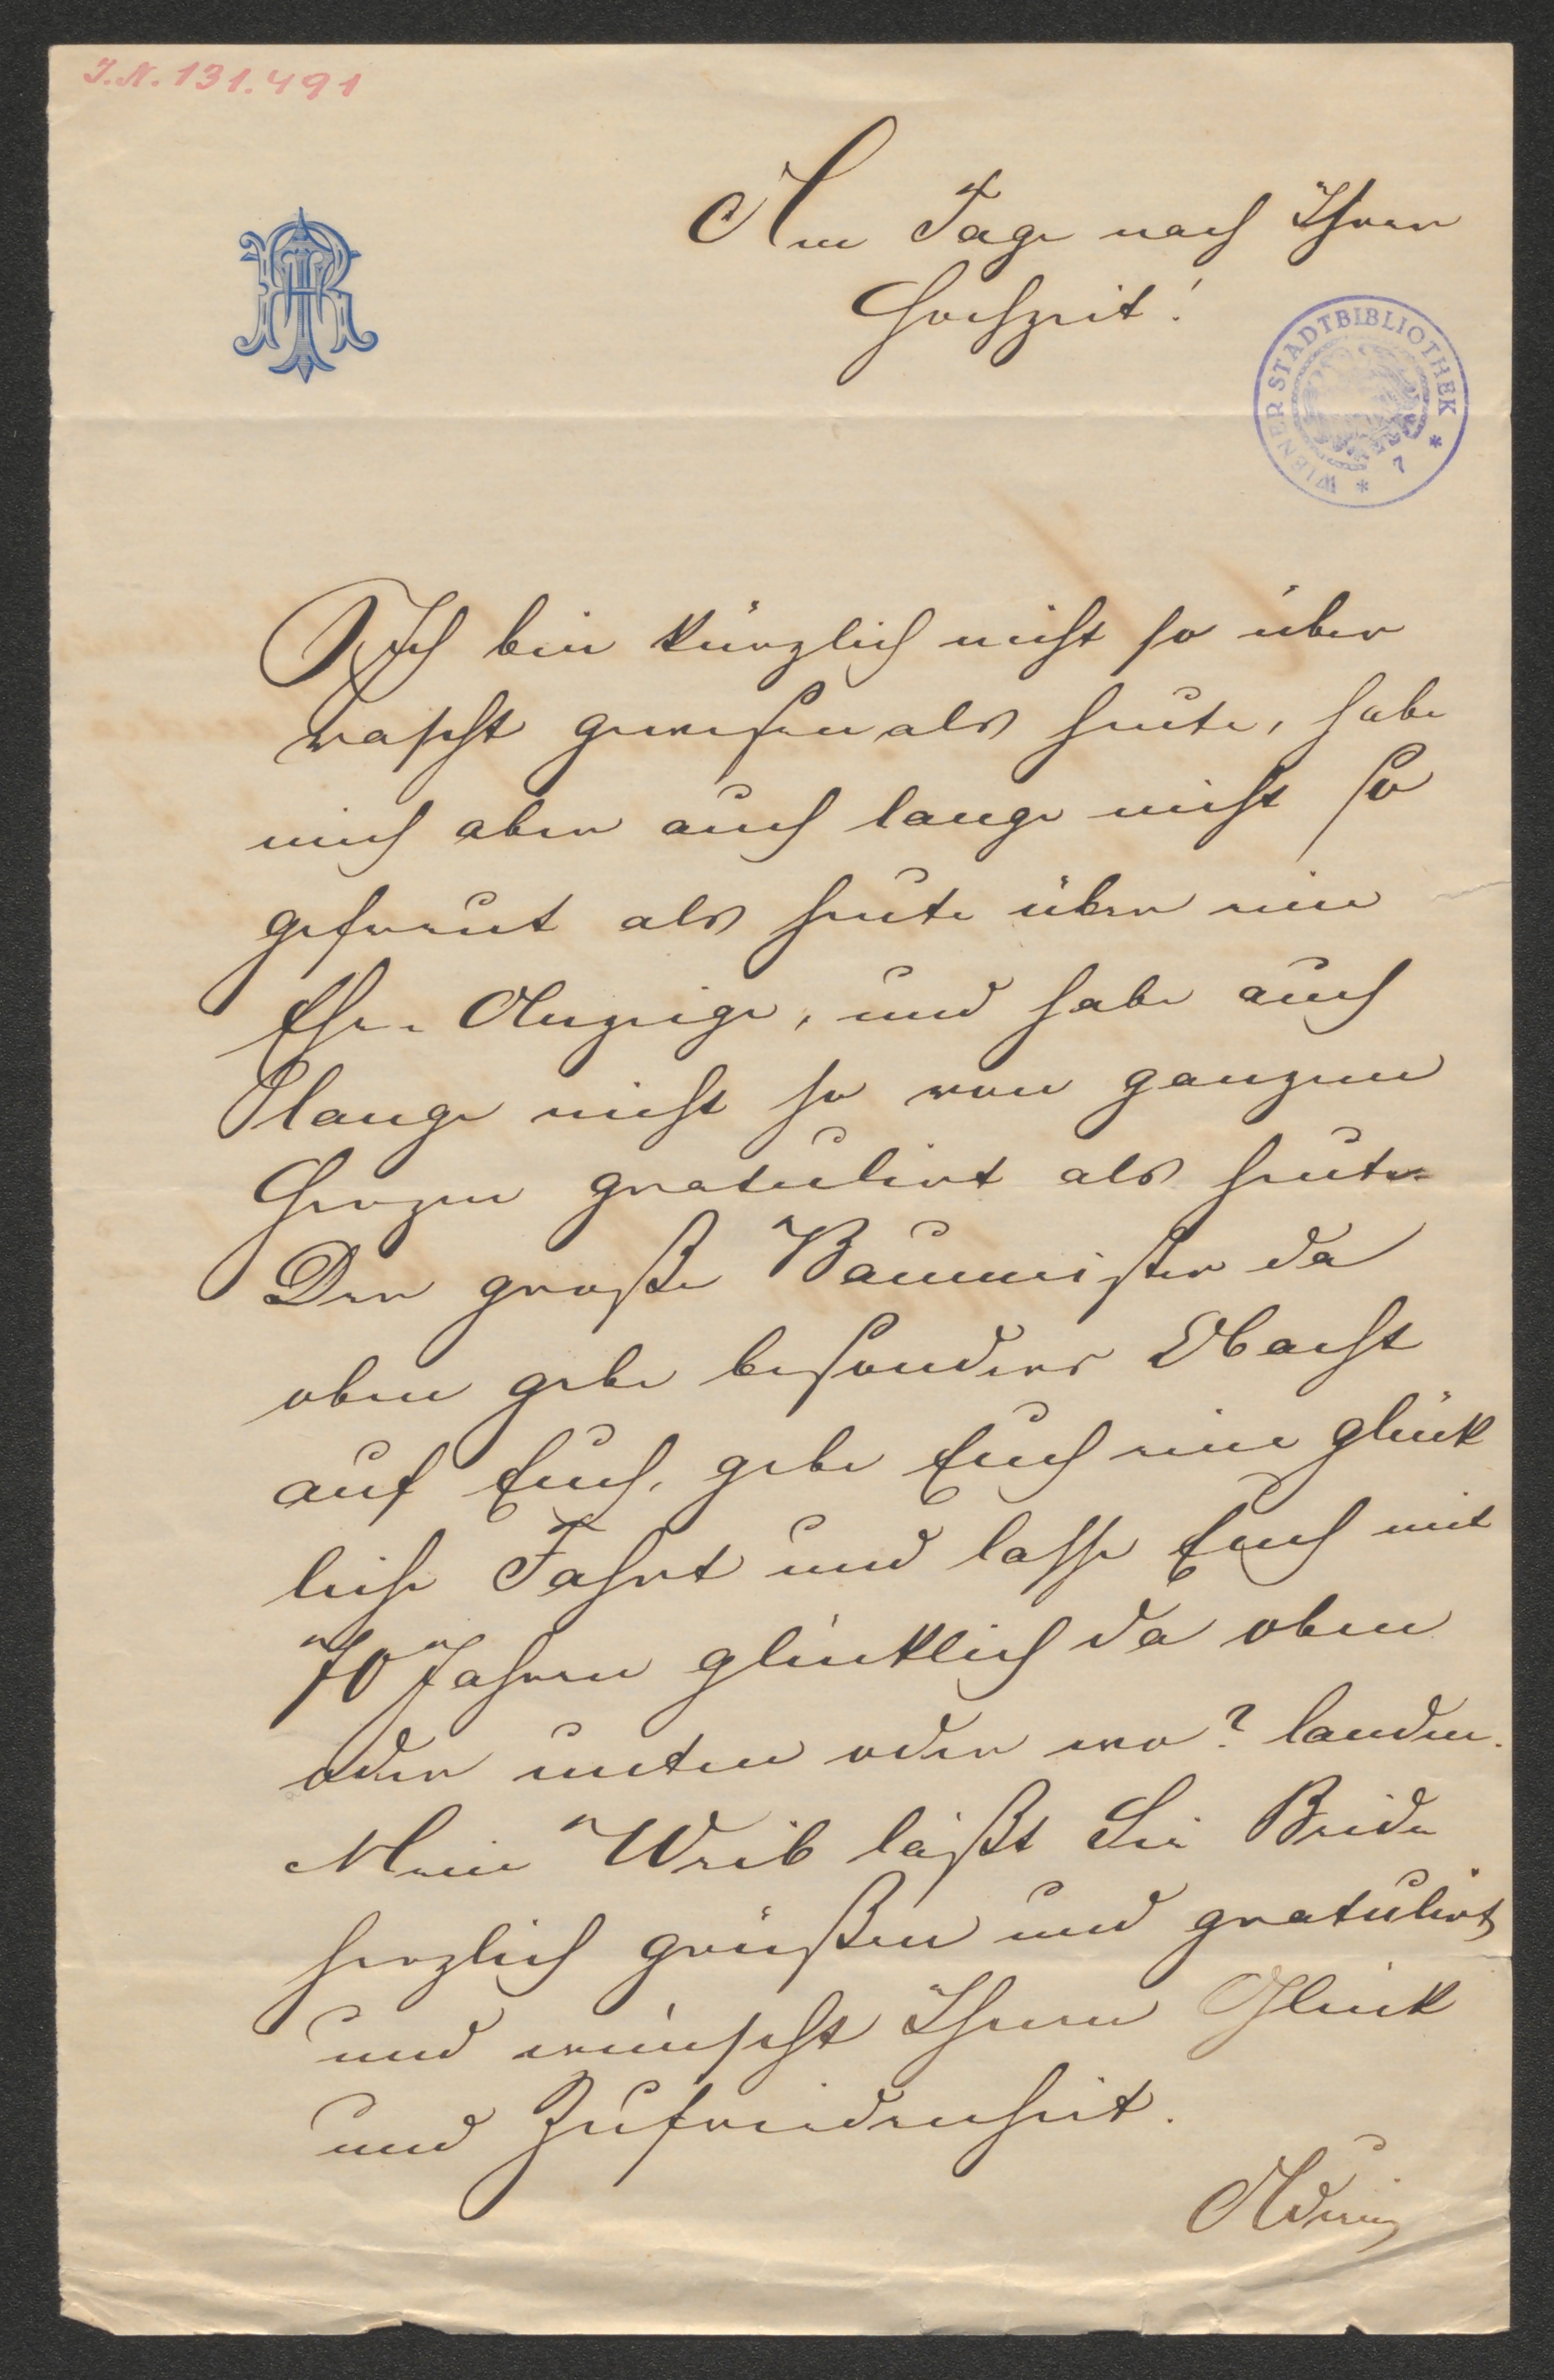 J.N. 131.491
Am Tage nach Ihrer
Hochzeit!
WIENER STADTBIBLIOTHEK * 7 *
Ich bin kürzlich nicht so über
rascht gewesen als heute, habe
mich aber auch lange nicht so
gefreut als heute über eine
Ehe-Anzeige, und habe auch
lange nicht so von ganzem
Herzen gratulirt als heute.
Der große Baumeister da
oben gebe besonders Obacht
auf Euch, gebe Euch eine glück
liche Fahrt und lasse Euch mit
70 Jahren glücklich da oben
oder unten oder wo? landen.
Mein Weib läßt Sie Beide
herzlich grüßen und gratulirt
und wünscht Ihnen Glück
und Zufriedenheit.